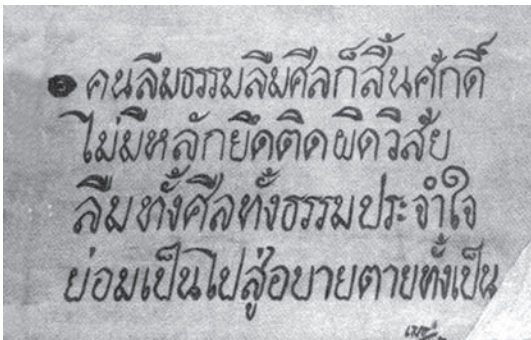 คนลืมธรรมลืมศีลก็สิ้นศักดิ์
ไม่มีหลักยึดติดผิดวิสัย
ลืมทั้งศีลทั้งธรรมประจำใจ
ย่อมเป็นไปสู่อบายตายทั้งเป็น